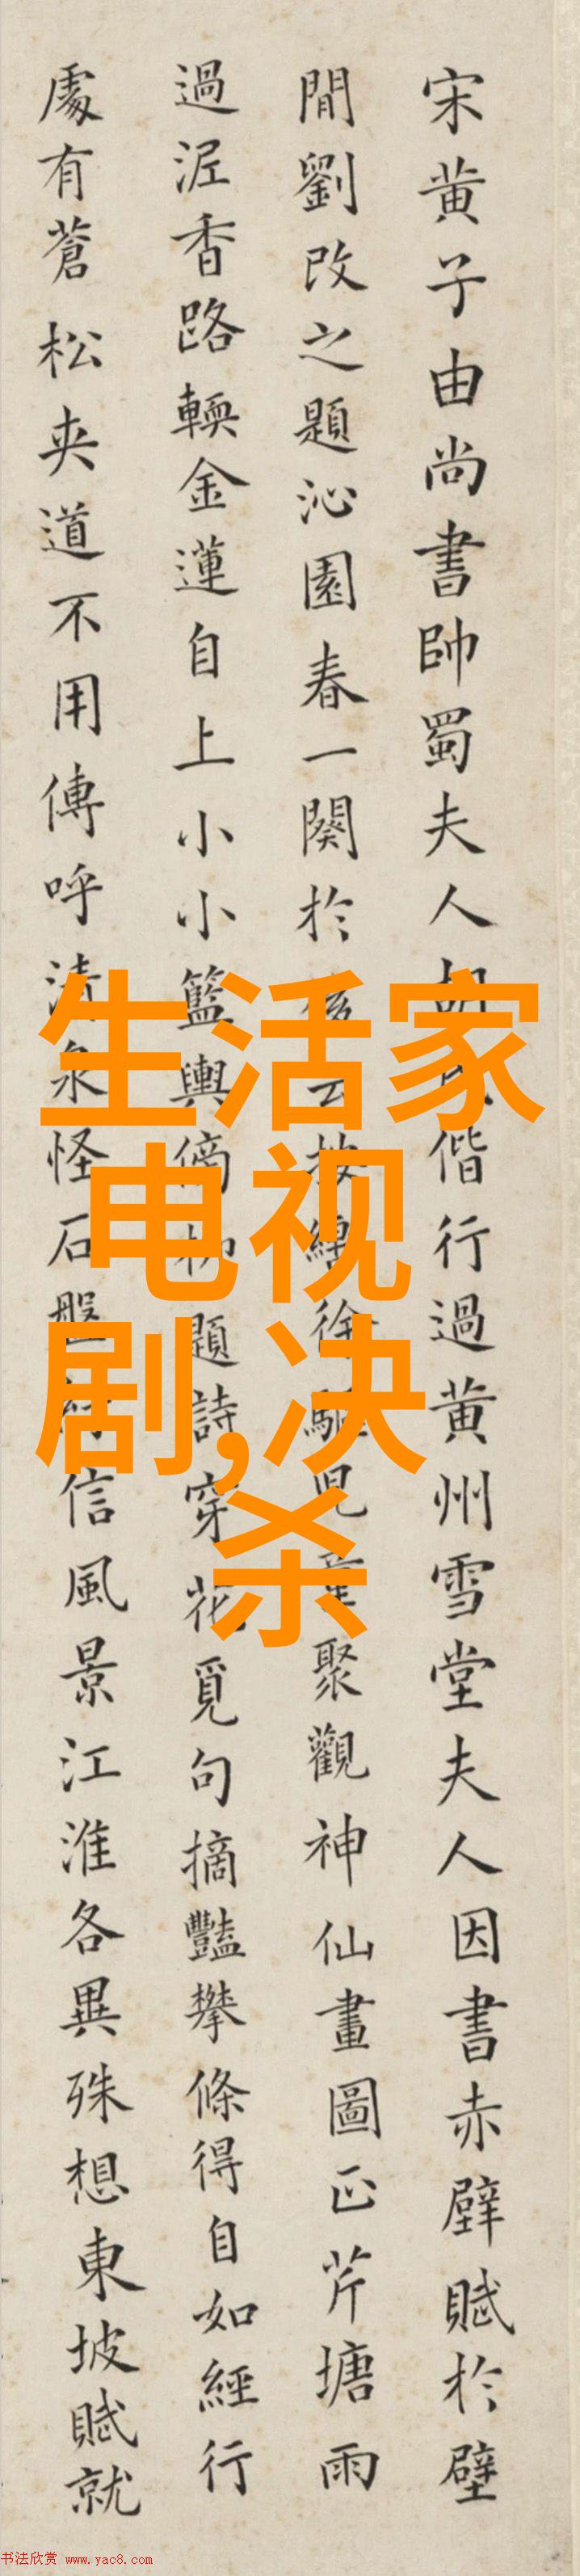 宋黄子由尚書帥蜀夫人胡偕行過黄州雪堂夫人因書赤壁賦於壁
閒劉改之題沁園春一闋於後按轡徐驅兒童聚觀神仙畫圖正芹塘雨
過泥香路輭金蓮自上小小籃輿傍柳題詩穿花覓句摘豔攀條得自如經行
處有蒼松夾道不用傳呼清泉怪石盤信風景江淮各異殊想東坡賦就
生活家
电视
剧,决
杀
书法欣赏 www.yac8.com